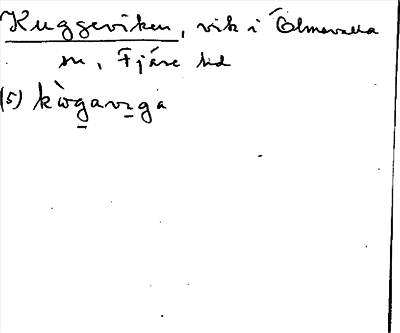 Kuggeviken, vik i Ölmevalla
sn, Fjäre hd
(5) kògavıga